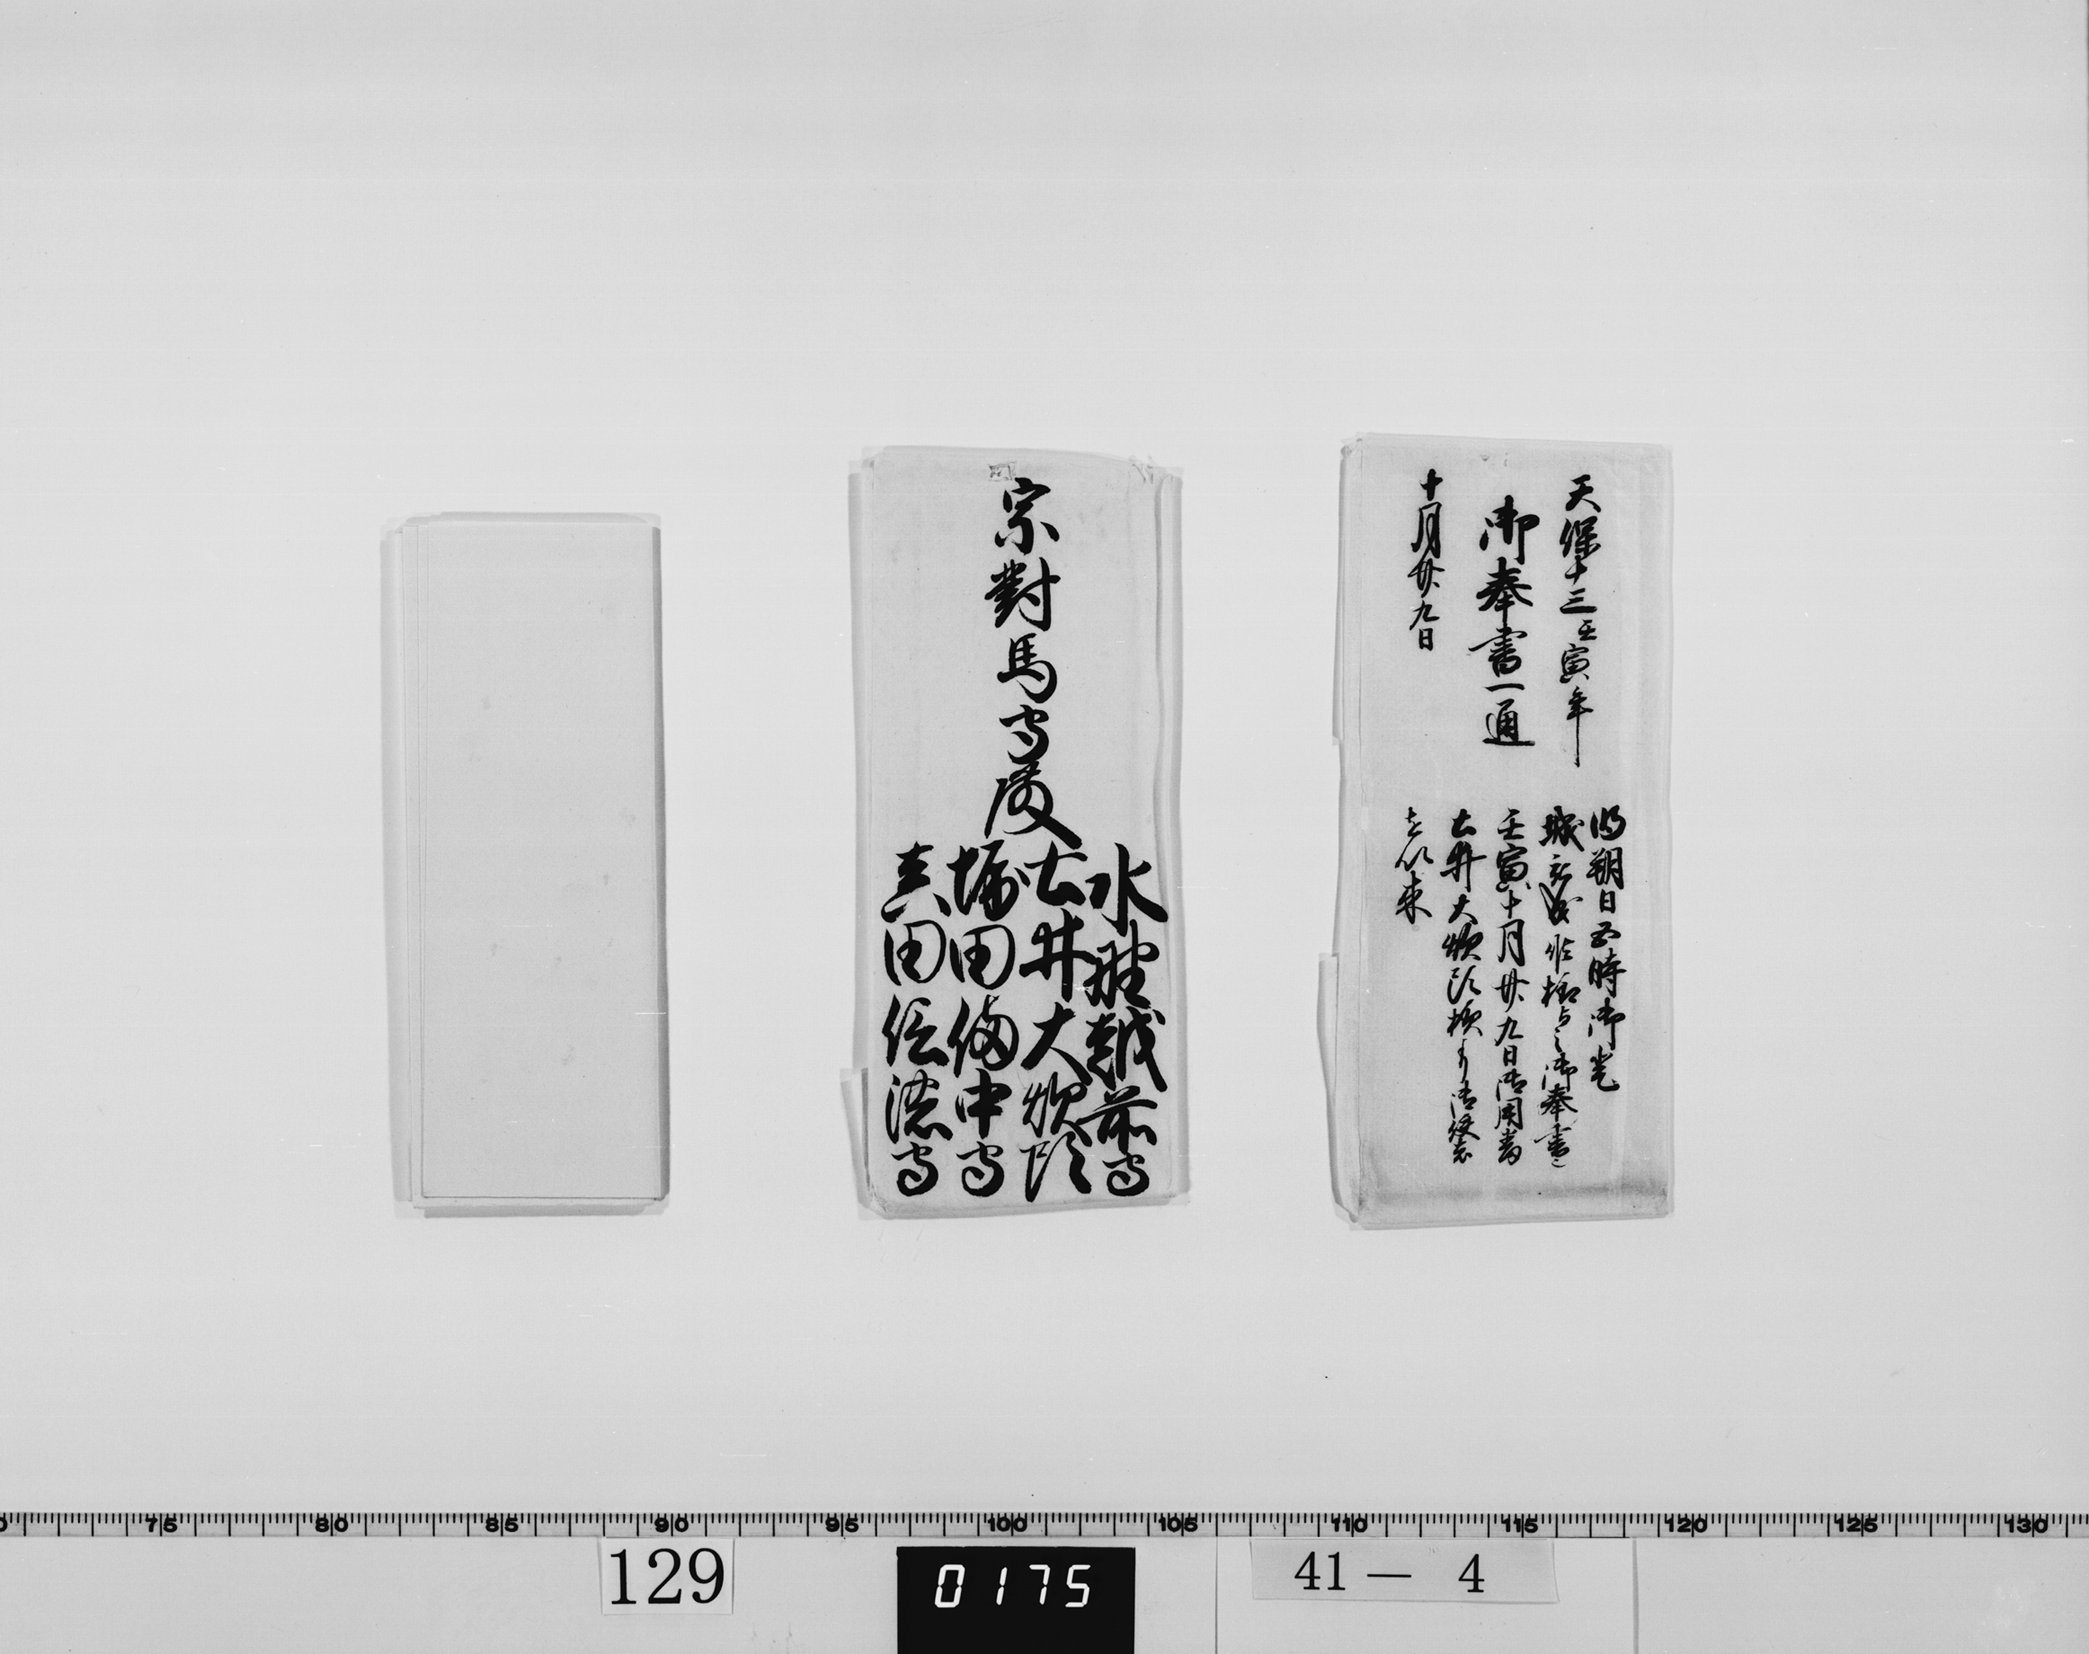 天保十三壬寅年
御奉書一通
十月廿九日
明朔日五時御黒
城被成候様与之御奉書
壬寅十月廿九日御用番
土井大炊頭様ゟ御使者
を以来
宗對馬守殿
水野越前守
土井大炊頭
堀田備中守
真田信濃守
75 80 85 90 95 100 105 110 115 120 125 130
129
0175
41— 4